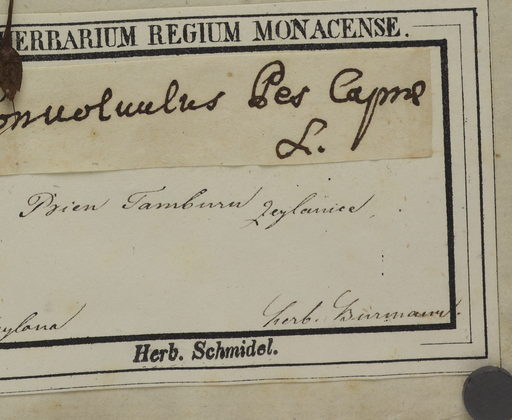 HERBARIUM REGIUM MONACENSE.
onvolvulus Pes Capræ
L.
Bin Tamburu Zeylanice.
eylona Herb. Burmann.
Herb. Schmidel.